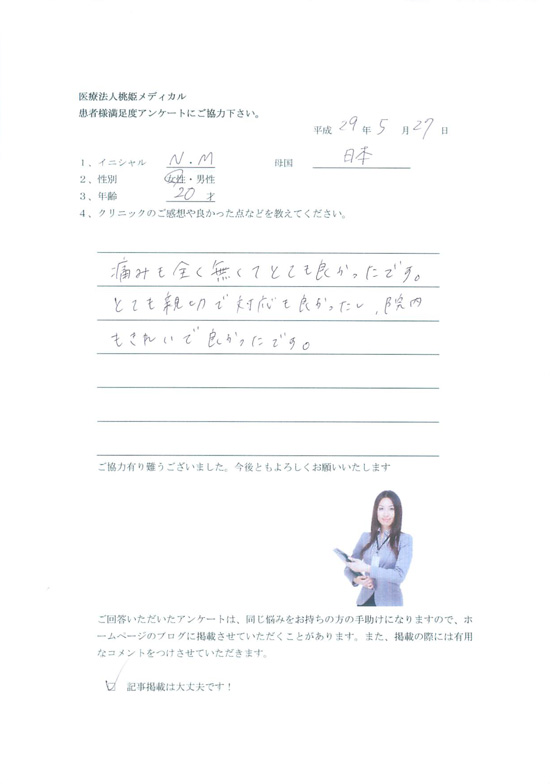 医療法人桃姫メディカル
患者様満足度アンケートにご協力下さい。
平成 29 年 5 月 27 日
1、イニシャル N.M 母国 日本
2、性別 女性・男性
3、年齢 20 才
4、クリニックのご感想や良かった点などを教えてください。
痛みも全く無くてとても良かったです。
とても親切で対応も良かったし、院内
もきれいで良かったです。
ご協力有り難うございました。今後ともよろしくお願いいたします
ご回答いただいたアンケートは、同じ悩みをお持ちの方の手助けになりますので、ホ
ームページのブログに掲載させていただくことがあります。また、掲載の際には有用
なコメントをつけさせていただきます。
☑ 記事掲載は大丈夫です！